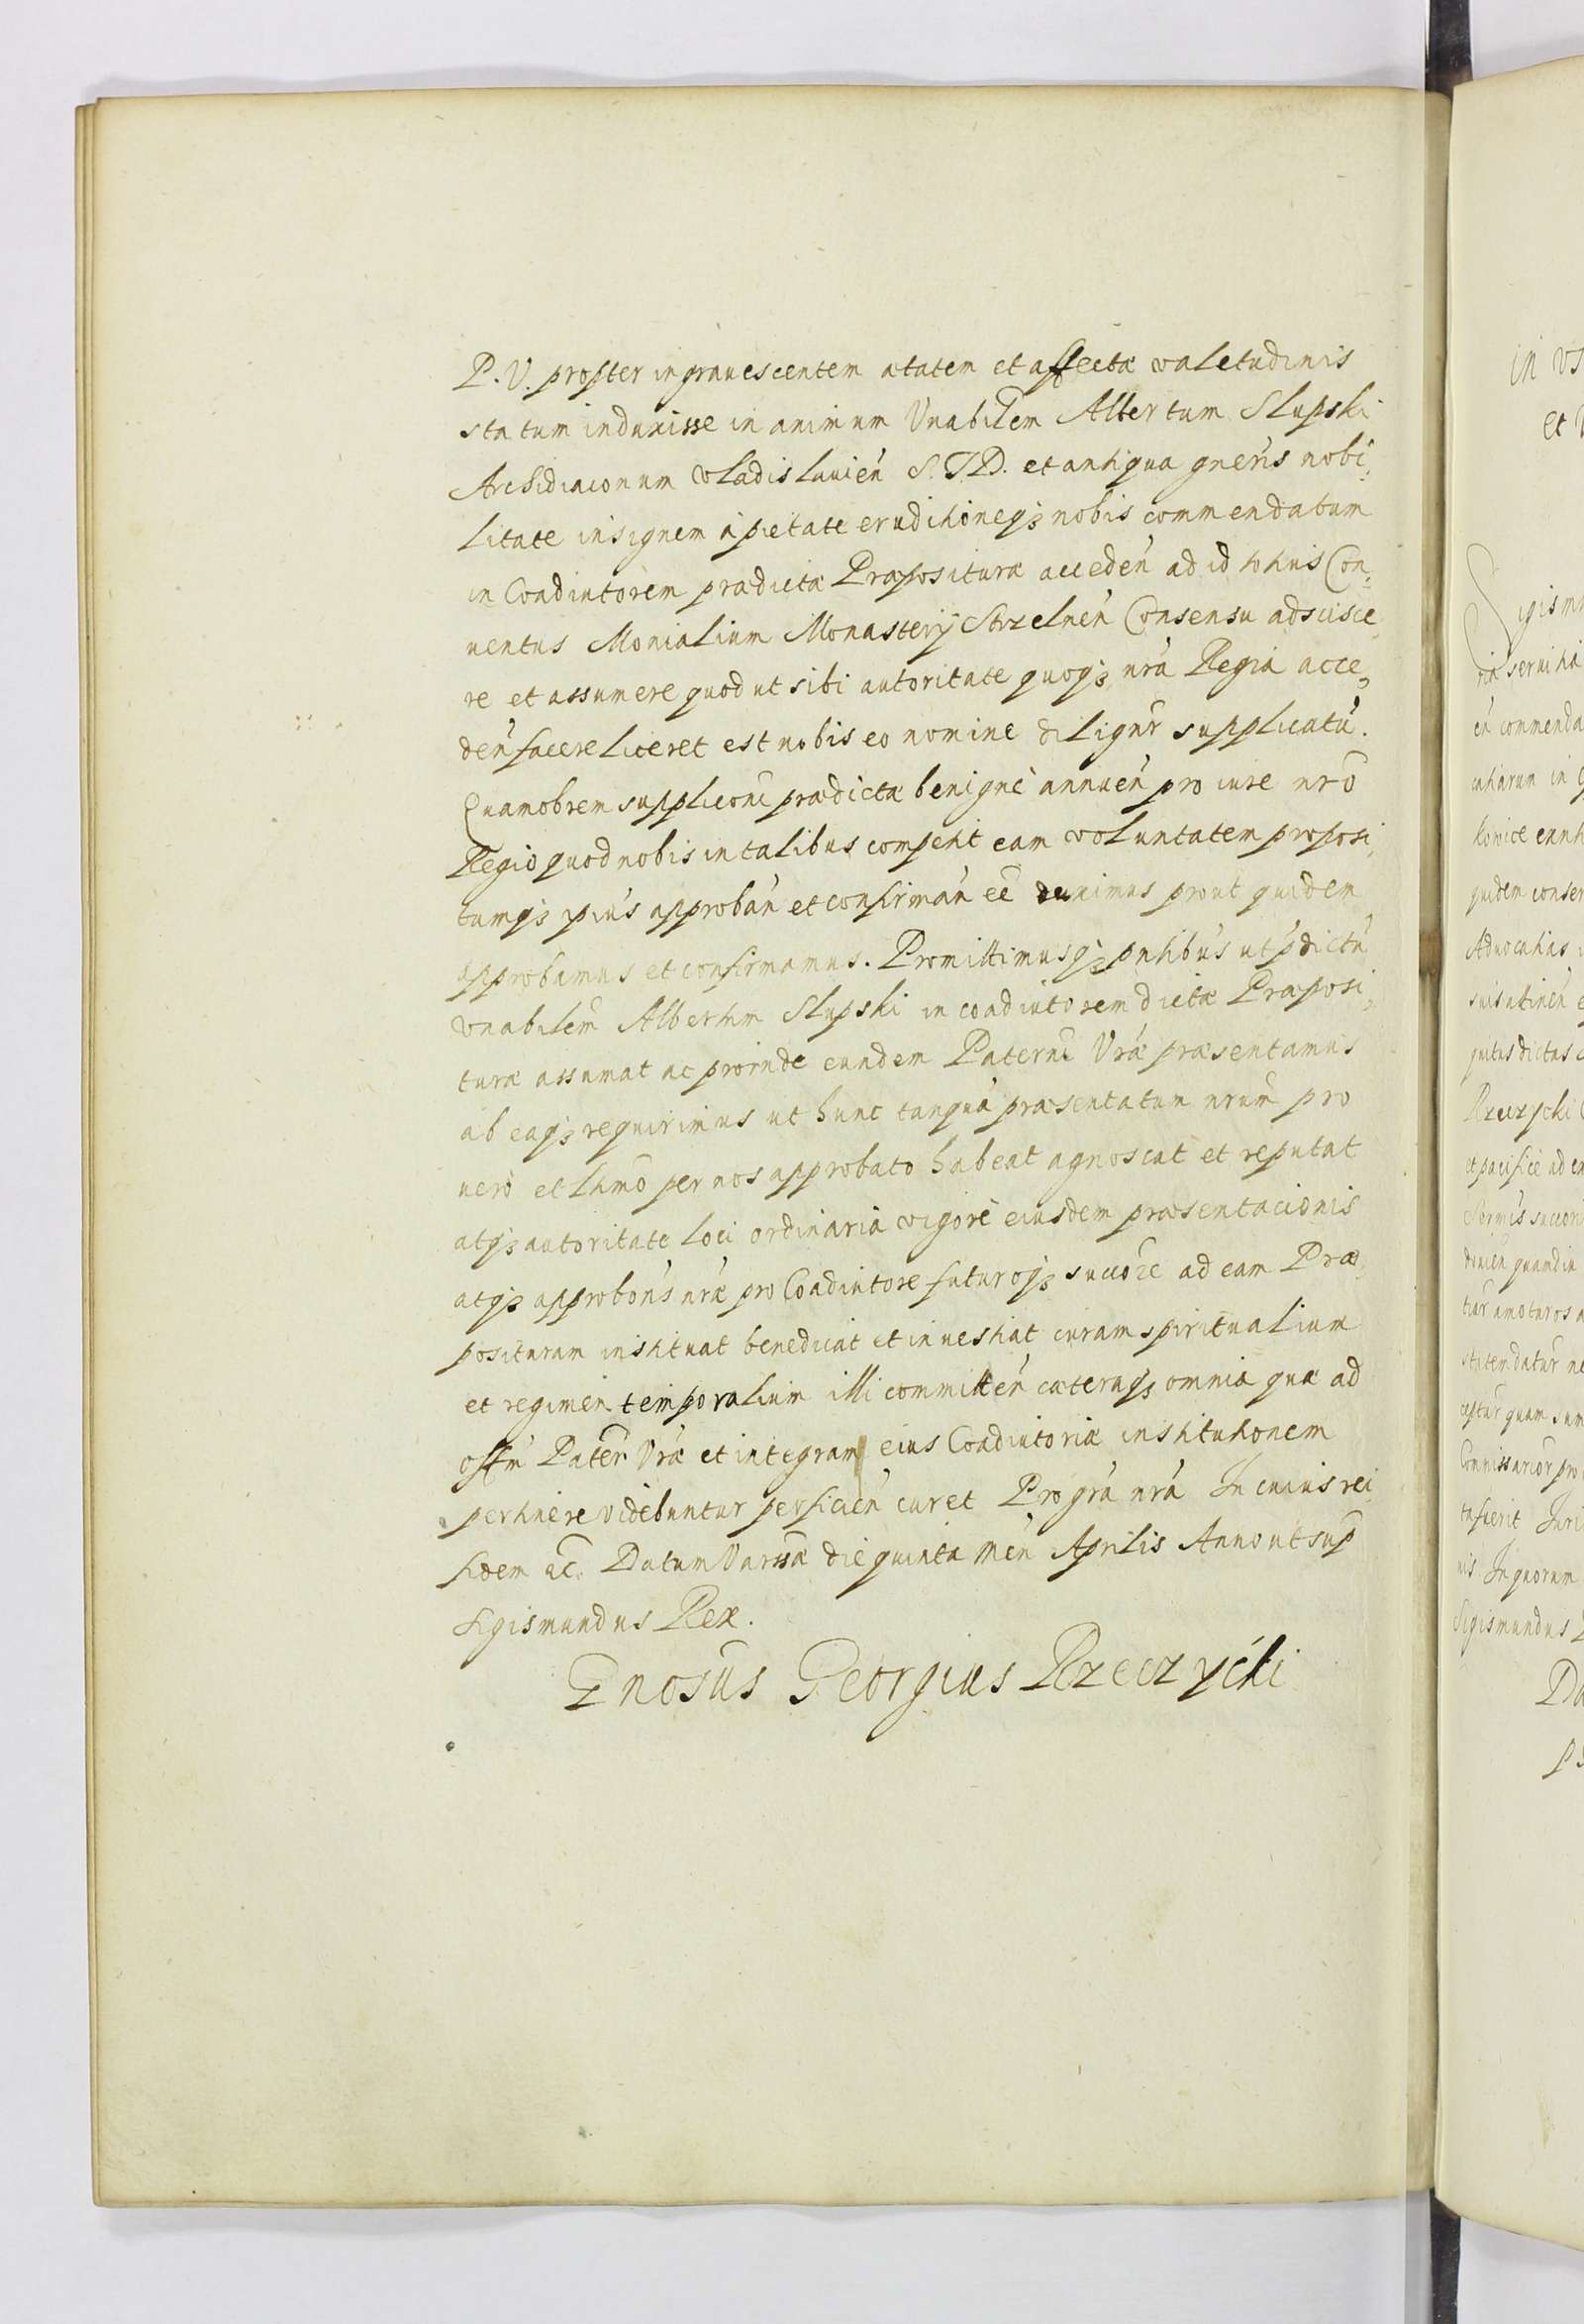 P. V. propter ingrauescentem ætatem et affectæ valetudinis
statum induxisse in animum Vnabilem Albertum Slupski
Archidiaconum Vladislauień S. T. D. et antiqua gneris nobi,
litate insignem a pietate eruditioneq; nobis commendatum
in Coadiutorem prædictæ Præposituræ acceden ad id totius Con,
uentus Monialium Monasterij Strzelnen Consensu adscisce
re et assumere quod ut sibi autoritate quoq; nra Regia acce,
den facere liceret est nobis eo nomine dilignr supplicatu.
Quamobrem suppliconi prædictæ benigne annuen pro iure nro
Regio quod nobis in talibus competit eam voluntatem proposi,
tumq; ipius approban et confirman ee duximus prout quidem
approbamus et confirmamus. Promittimusq; pntibus ut pdictu
vnabilem Albertum Slupski in coadiutorem dictæ Præposi,
turæ assumat ac proinde eundem Paterni Vræ præsentamus
ab eaq; requirimus ut hunc tanqua præsentatum nrum pro
uero et ltimo per nos approbato habeat agnoscat et reputat
atq; autoritate loci ordinaria vigore eiusdem præsentacionis
atq; approbonis nræ pro Coadiutore futuroq; succore ad eam Præ,
posituram instituat benedicat et inuestiat curam spiritualium
et regimen temporalium illi committen cæteraq; omnia quæ ad
offm Patern Vræ et integram eius Coadiutoriæ institutionem
pertinere videbuntur perficien curet Pro gra nra In cuius rei
fidem &c. Datum Varssæ die quinta Men Aprilis Anno ut sup
Sigismundus Rex.
Gnosus Georgius Rzeczycki
in vs
et
Sigism
en commenda
quidem conser
quitas dictas
Rzeczycki
Commissarior pro
tuferit Juri
In quorum
Sigismundus
Da